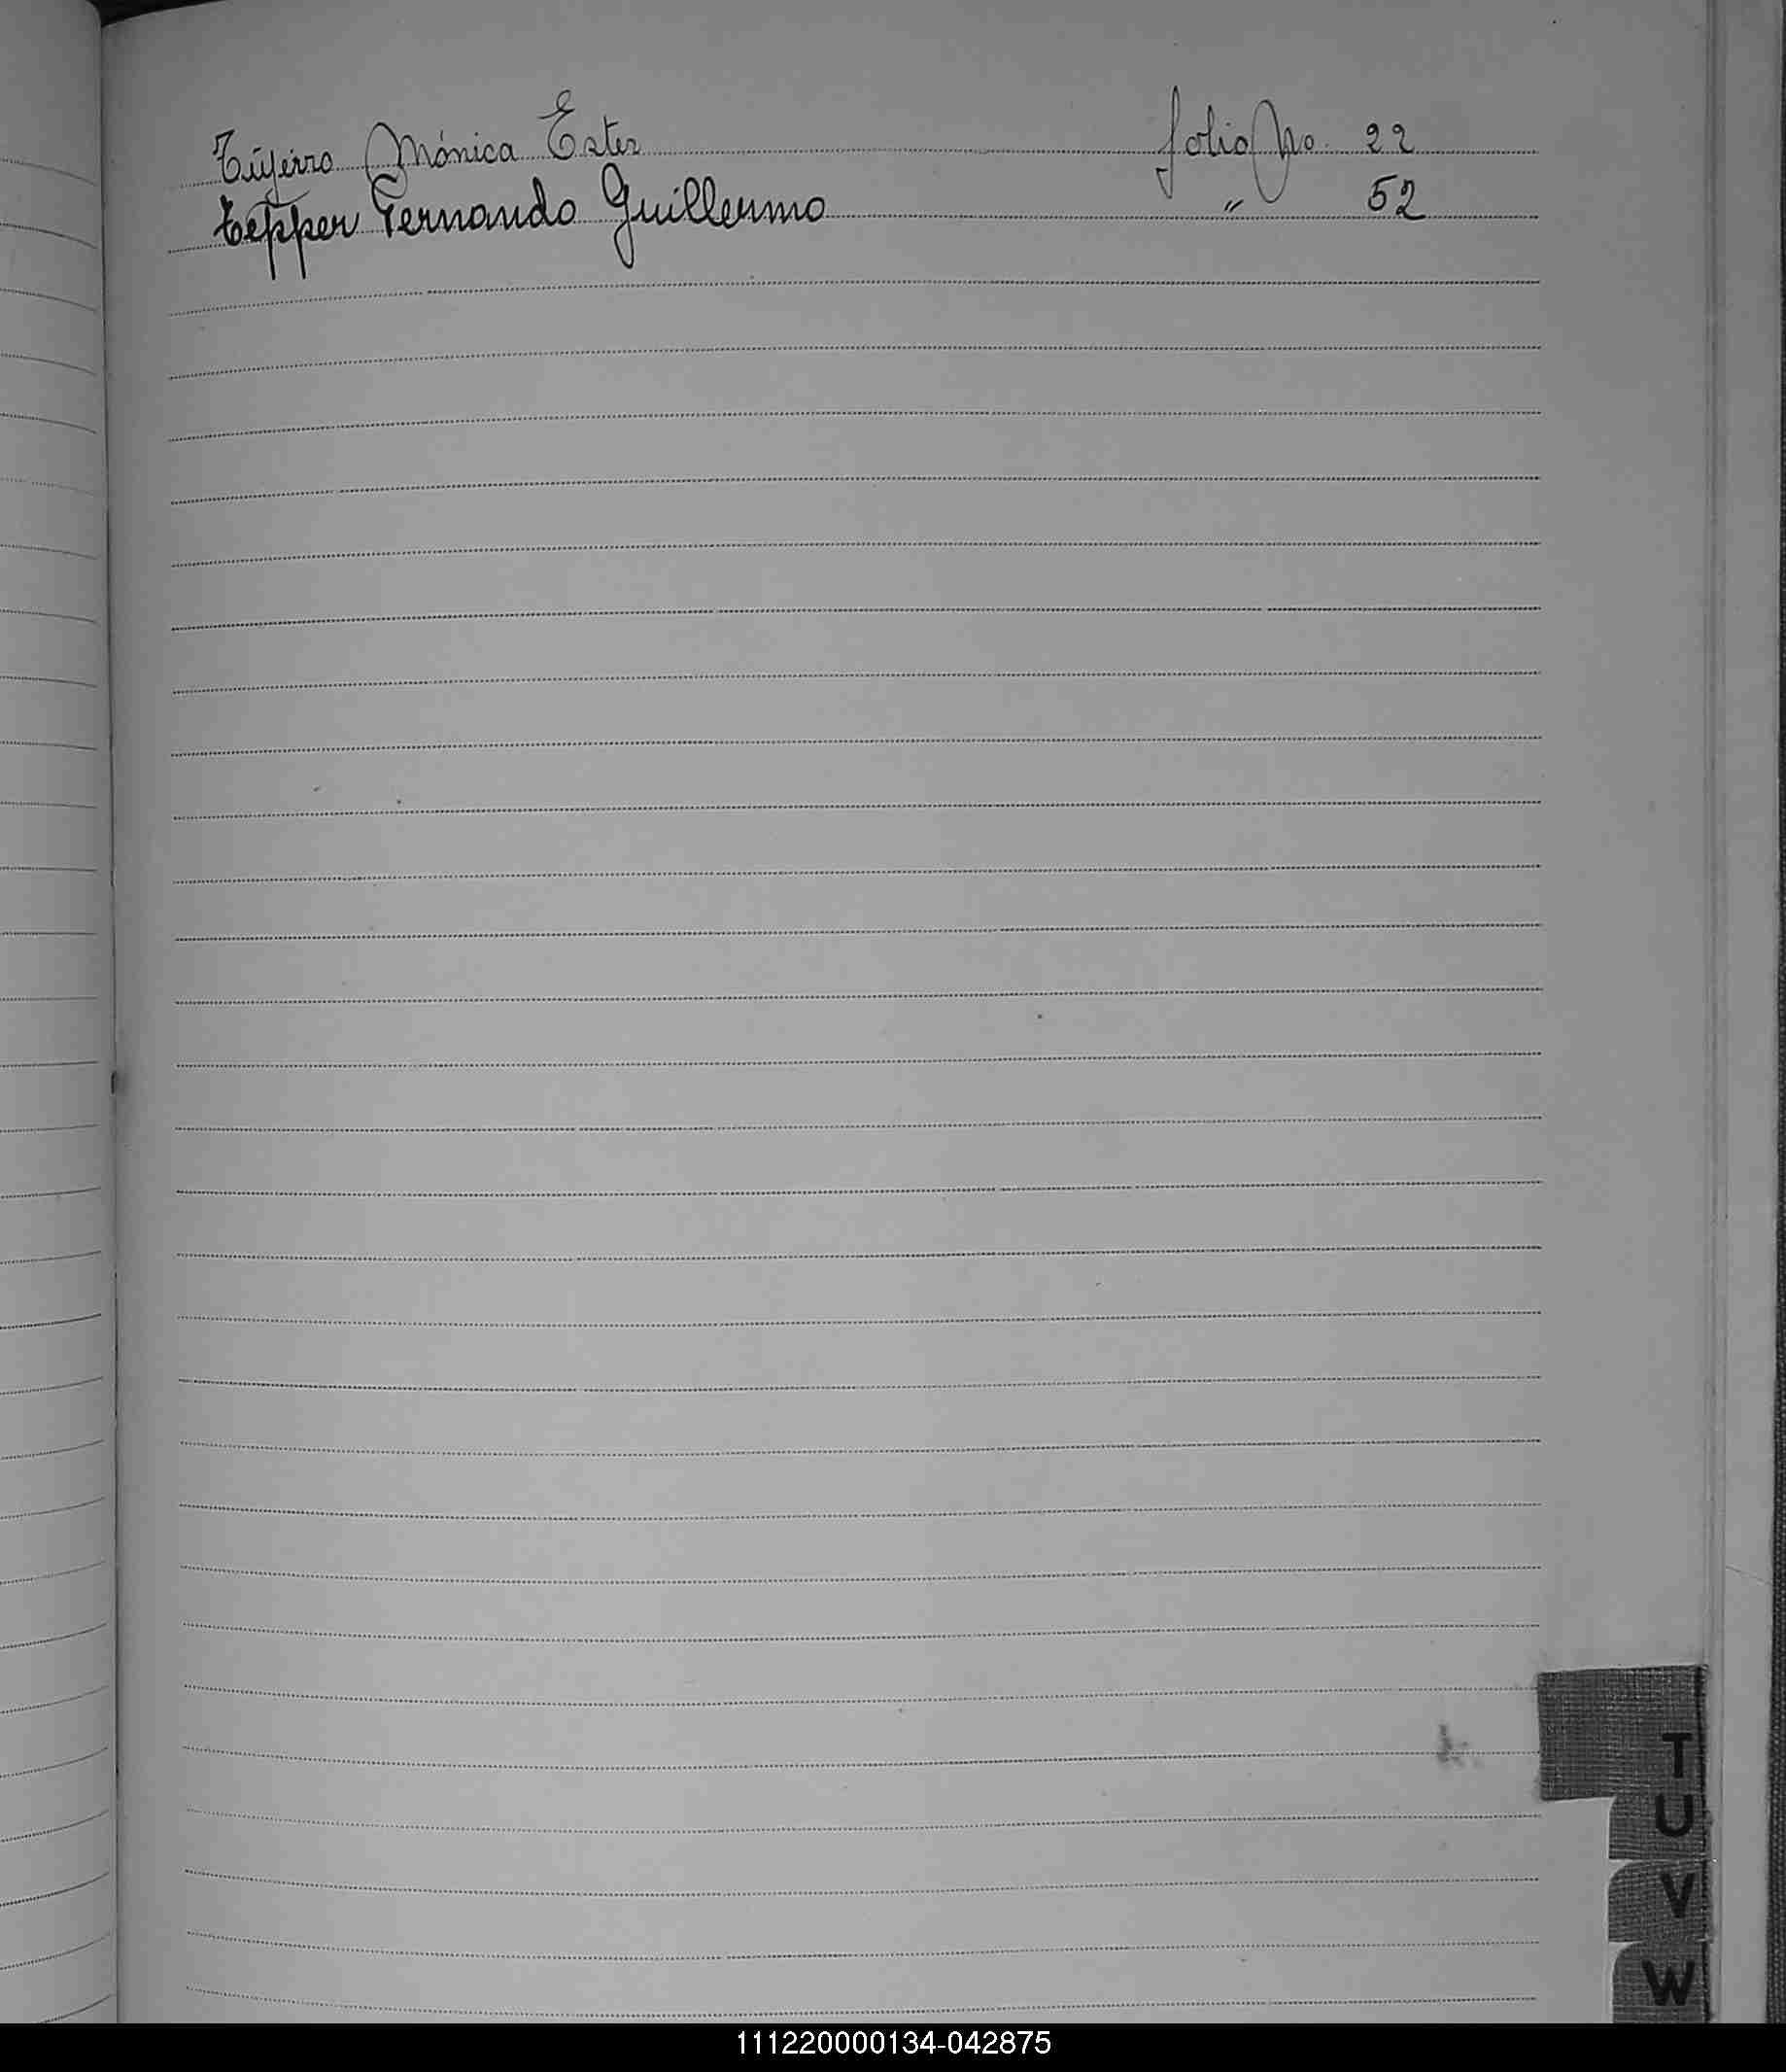 Mónica Ester folio No. 22
Tepper Fernando Guillermo " 52
T
U
V
W
111220000134-042875